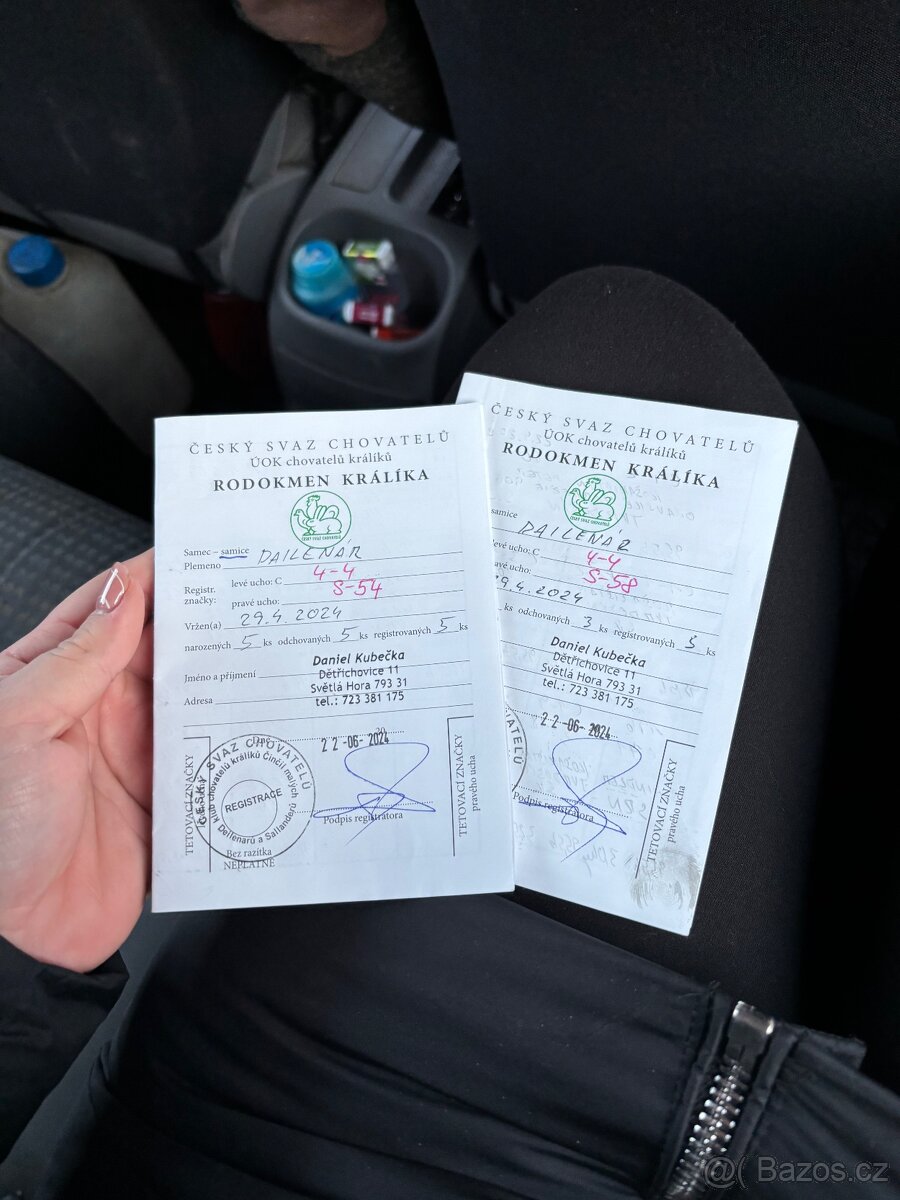 ČESKÝ SVAZ CHOVATELŮ
ÚOK chovatelů králíků
RODOKMEN KRÁLÍKA
ČESKÝ SVAZ CHOVATELŮ
Samec – samice
Plemeno DAILENÁR
Registr. značky:
levé ucho: C 4-4
pravé ucho: S-54
Vržen(a) 29.4.2024
narozených 5 ks odchovaných 5 ks registrovaných 5 ks
Jméno a příjmení Daniel Kubečka
Dětřichovice 11
Adresa Světlá Hora 793 31
tel.: 723 381 175
Dne 22-06-2024
TETOVACÍ ZNAČKY
ČESKÝ SVAZ CHOVATELŮ
Klub chovatelů králíků Činčil malých
Deilenarů a Sallanderů
REGISTRACE
Podpis registrátora
Bez razítka
NEPLATNÉ
TETOVACÍ ZNAČKY
pravého ucha
ČESKÝ SVAZ CHOVATELŮ
ÚOK chovatelů králíků
RODOKMEN KRÁLÍKA
ČESKÝ SVAZ CHOVATELŮ
samice
DAILENAR
levé ucho: C 4-4
pravé ucho: S-58
29.4.2024
ks odchovaných 3 ks registrovaných 3 ks
Daniel Kubečka
Dětřichovice 11
Světlá Hora 793 31
tel.: 723 381 175
22-06-2024
Podpis registrátora
TETOVACÍ ZNAČKY
pravého ucha
@( Bazos.cz